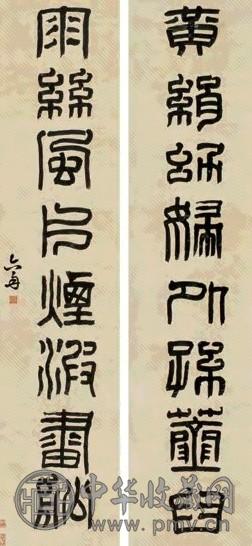 黃絹幼婦外孫虀臼
雨絲風片煙波畫船
六舟
中华收藏网
www.pmv.cn